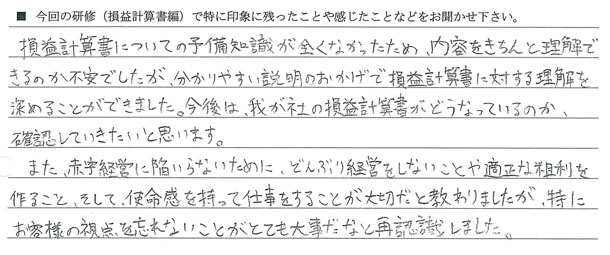 ■ 今回の研修（損益計算書編）で特に印象に残ったことや感じたことなどをお聞かせ下さい。
損益計算書についての予備知識が全くなかったため、内容をきちんと理解で
きるのか不安でしたが、分かりやすい説明のおかげで損益計算書に対する理解を
深めることができました。今後は、我が社の損益計算書がどうなっているのか、
確認していきたいと思います。
また、赤字経営に陥いらないために、どんぶり経営をしないことや適正な粗利を
作ること、そして、使命感を持って仕事をすることが大切だと教わりましたが、特に
お客様の視点を忘れないことがとても大事だなと再認識しました。